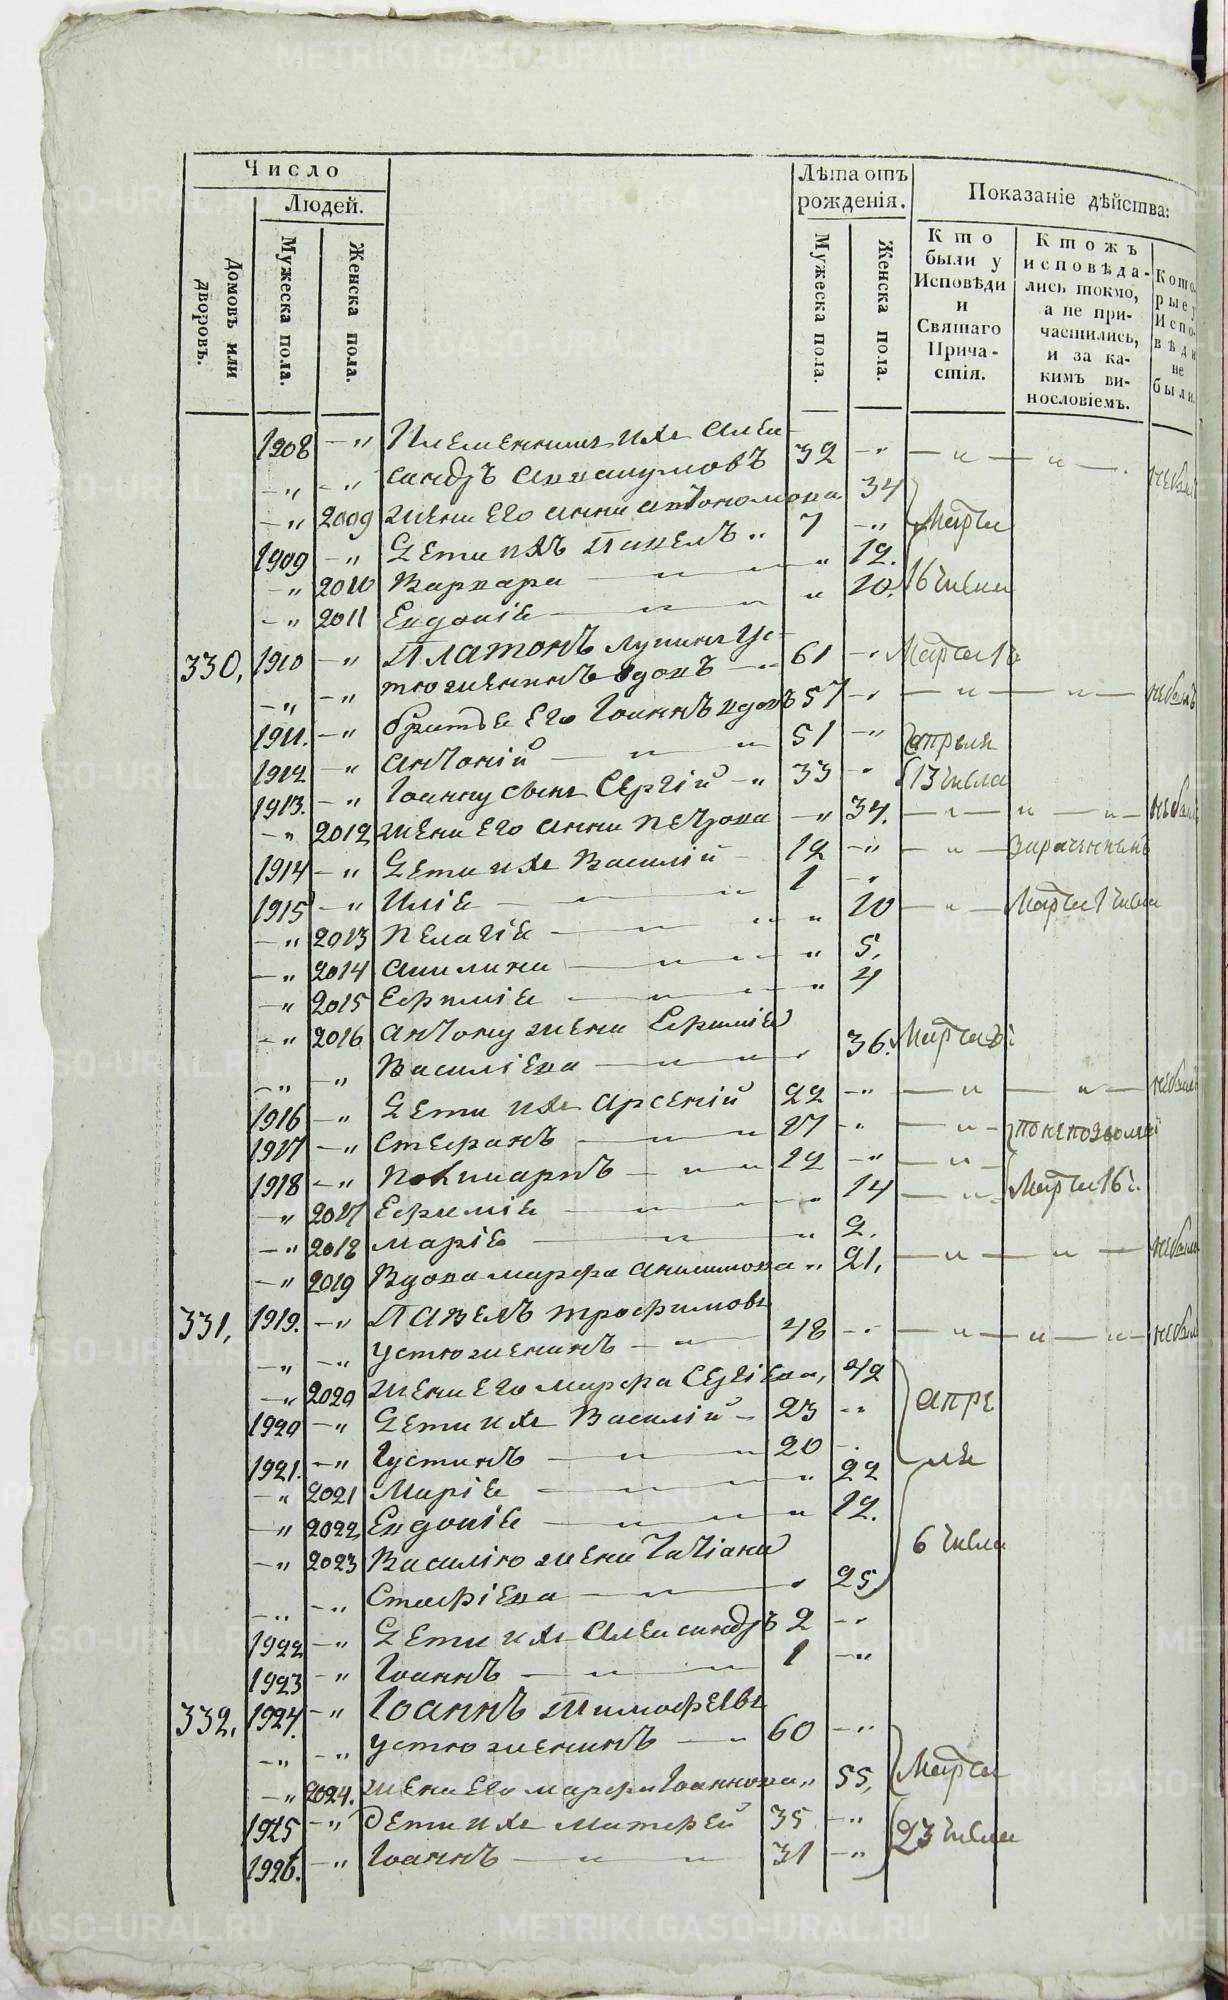 Число
Людей.
Домовъ или дворовъ.
Мужеска пола.
Женска пола.
Лѣта отъ рожденія.
Мужеска пола.
Женска пола.
Показаніе дѣйства:
Кто были у Исповѣди и Святаго Причастія.
Ктожъ исповѣдались токмо, а не причастились, и за какимъ винословіемъ.
Которые у Исповѣди не были.
1908 — „ Племенникъ ихъ Алек-
— „ — „ сандръ 32 — „ — „ — „ — небылъ
— „ 2009 жена его Анна 34 Марта
1909 — „ Дети ихъ Павелъ „ 7 — „
— „ 2010 Варвара — „ — „ 12. 16 числа
— „ 2011 Евдокіа — „ — „ 10.
330, 1910 — „ Платонъ Лукинъ Ус-
— „ — „ тюженинъ вдовъ — „ 61 — „ Марта 16
1911. — „ братья его Іоаннъ вдовъ 57 — „ — „ — „ — небылъ
1912 — „ Антоній — „ — „ 51 — „ апреля
1913. — „ Іоанну сынъ Сергій — „ 33 — „ 13 числа
— „ 2012 жена его Анна Петрова — „ 34. — „ — „ — „ — небыла
1914 — „ Дети ихъ Василій — 12 — „ — „ —
1915 — „ Иліа — „ — „ 1 — „
— „ 2013 Пелагіа — „ — „ 10 — „ — Марта 1 числа
— „ 2014 Акилина — „ — „ 5,
— „ 2015 Ефиміа — „ — „ 4
— „ 2016 Антону жена Ефиміа
— „ — „ Василіева — „ — „ 36. Марта
1916 — „ Дети ихъ Арсеній 22 — „ — „ — „ — небылъ
1917 — „ Стефанъ — „ — „ 17 — „ — „ —
1918 — „ — „ — „ 12 — „ — „ —
— „ 2017 Ефиміа — „ — „ 14 — „ — Марта 16 ч.
— „ 2018 Маріа — „ — „ 2.
— „ 2019 Вдова Марфа „ 21, — „ — „ — небыла
331, 1919. — „ Павелъ Трофимовъ
— „ — „ Устюженинъ — „ 48 — „ — „ — „ — „ — небылъ
— „ 2020 жена его Марфа Сергіева, 42 апре
1920 — „ Дети ихъ Василій — 23 — „
1921. — „ Іустинъ — „ — „ 20 — „ ля
— „ 2021 Маріа — „ — „ 22
— „ 2022 Евдокіа — „ — „ 12.
— „ 2023 Василію жена Татіана 6 числа
— „ — „ Стафіева — „ — „ 25
1922 — „ Дети ихъ Александръ 2 — „
1923 — „ Іоаннъ — „ — „ 1 — „
332, 1924. — „ Іоаннъ Тимофеевъ
— „ — „ Устюженинъ — „ 60 — „
— „ 2024. жена его Марфа Іоаннова „ 55, Марта
1925 — „ Дети ихъ Матфей 35 — „ 23 числа
1926. — „ Іоаннъ — „ — „ 31 — „